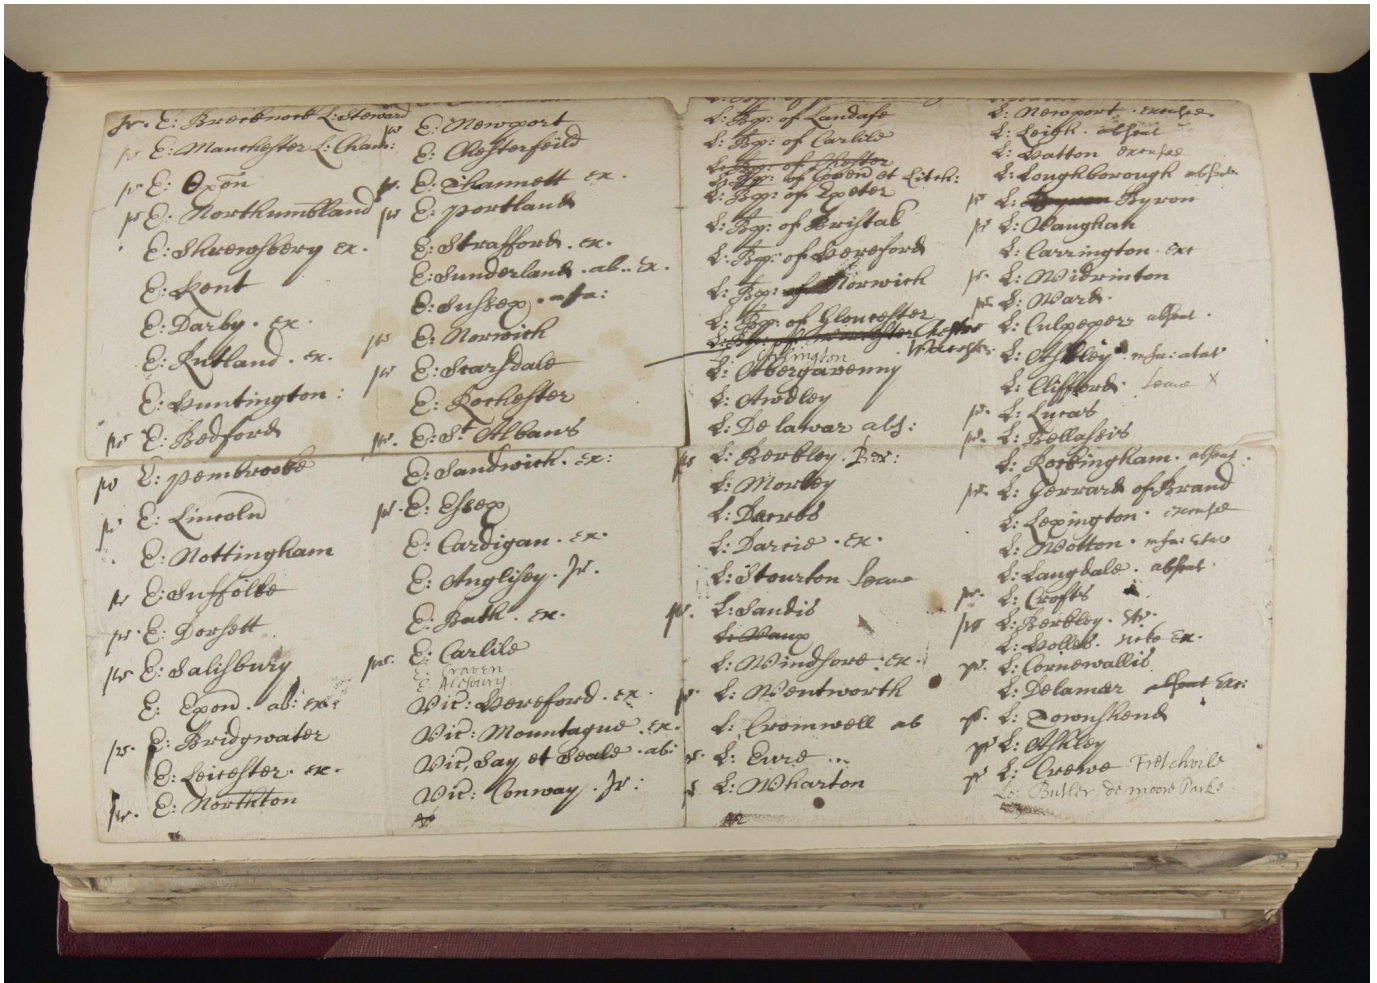 Jr. E: Brecknock L: Steward
pr E: Manchester L: Cham:
pr E: Oxon
pr E: Northumbland
E: Shrewsbery ex.
E: Kent
E: Darby. ex.
E: Rutland. ex.
E: Huntington:
pr E: Bedford
pr E: Pembrooke
pr E: Lincoln
E: Nottingham
pr E: Suffolke
pr. E: Dorsett
pr E: Salisbury
E: Exon. ab: ex:
pr. E: Bridgwater
E: Leicester. ex.
pr. E: Northton
pr E: Newport
E: Chesterfeild
pr. E: Thannett ex.
pr E: Portland
E: Strafford. ex.
E: Sunderland. ab.. ex.
E: Sussex.
pr E: Norwich
pr E: Scarsdale
E: Rochester
pr. E: St Albans
E: Sandwich. ex:
pr. E: Essex
E: Cardigan. ex.
E: Anglisey. Jr.
E: Bath. ex.
pr. E: Carlile
E: Craven
E Alesbury
Vic: Hereford. ex.
Vic: Mountague. ex.
Vic, Say et Seale. ab:
Vic: Conway. Jr:
L: Bp: of Landafe
L: Bp: of Carlile
L: Bp: of Chester
L: Bp: of Coven et Litch:
L: Bp: of Exeter
L: Bp: of Bristal
L: Bp: of Hereford
L: Bp: of Norwich
L: Bp: of Gloucester
L: Bp: of Chester
Arlington
L: Abergavenny
L: Awdley
L: Delawar abs:
pr L: Berkley. Ber:
L: Morley
L: Dacres
L: Darcie. ex.
L: Stourton leave
pr. L: Sandis
L: Vaux
L: Windsore. ex.
pr. L: Wentworth
L: Cromwell ab
pr. L: Eure ...
pr L: Wharton
L: Newport. excuse
L: Leigh. absent
L: Hatton excuse
L: Loughborough absent
pr L: Byron
pr L: Vaughan
L: Carrington. exc
pr. L: Widrinton
pr. L: Ward.
L: Culpeper absent.
L: Ashley
L: Clifford. leave X
pr. L: Lucas
pr. L: Bellassis
L: Rockingham. absent.
pr. L: Gerrard of Brand
L: Lexington. excuse
L: Wotton.
L: Langdale. absent.
pr. L: Crofts
pr L: Berkley. St:
L: Holles. ex.
pr. L: Cornewallis
L: Delamer absent Exc:
pr. L: Townshend
pr L: Ashley
pr L: Crewe Fretchvile
L: Butler de moore Parke.